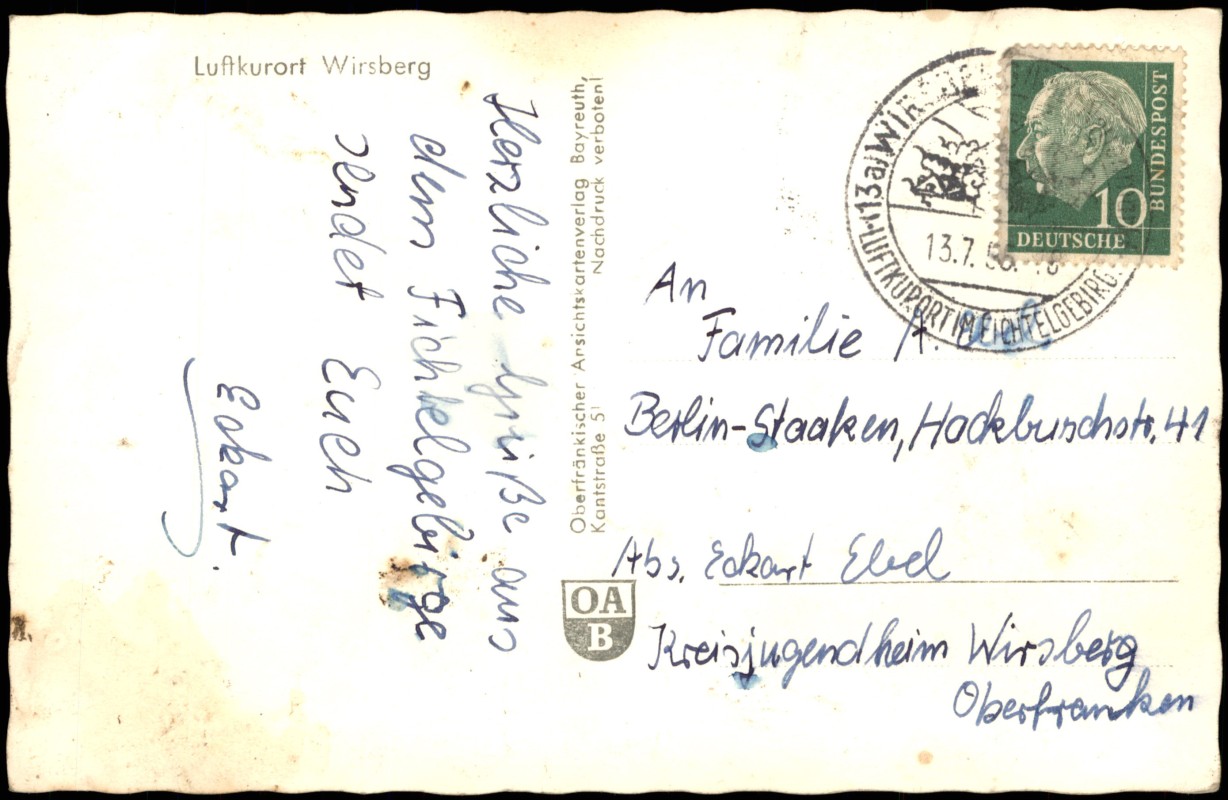 Luftkurort Wirsberg
Herzliche Grüße aus
dem Fichtelgebirge
sendet Euch
Eckart.
Oberfränkischer Ansichtskartenverlag Bayreuth,
Kantstraße 5 Nachdruck verboten!
OA
B
(13a) WIRSBERG
13.7.
LUFTKURORT IM FICHTELGEBIRGE
10
DEUTSCHE
BUNDESPOST
An
Familie A.
Berlin-Staaken, Hackbuschstr. 41
Abs. Eckart Ebel
Kreisjugendheim Wirsberg
Oberfranken